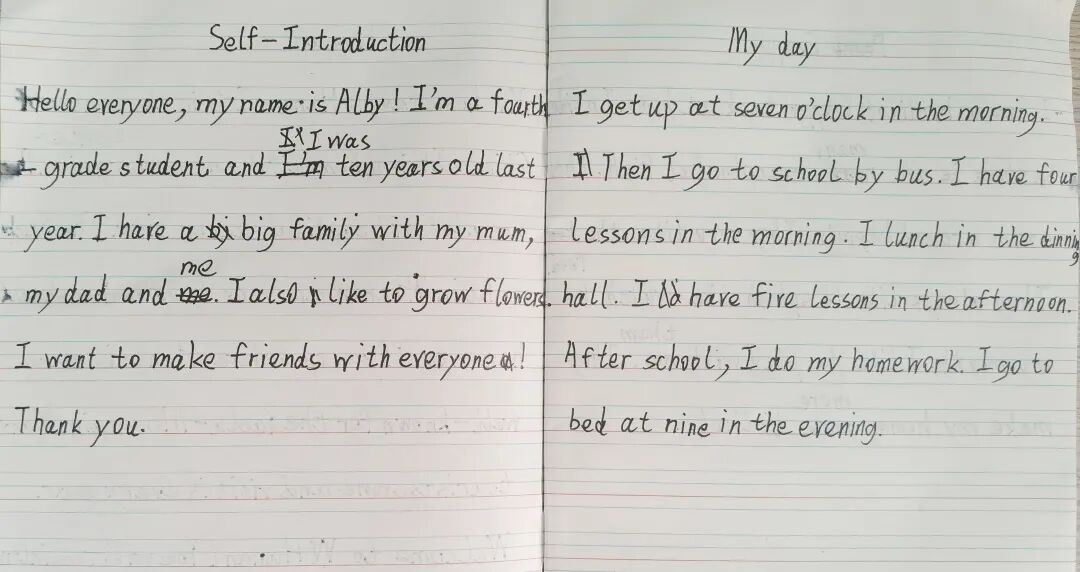 Self-Introduction
Hello everyone, my name is Alby! I'm a fourth
grade student and I was ten years old last
year. I have a big family with my mum,
my dad and me. I also like to grow flowers.
I want to make friends with everyone!
Thank you.
My day
I get up at seven o'clock in the morning.
Then I go to school by bus. I have four
lessons in the morning. I lunch in the dinning
hall. I have five lessons in the afternoon.
After school, I do my homework. I go to
bed at nine in the evening.